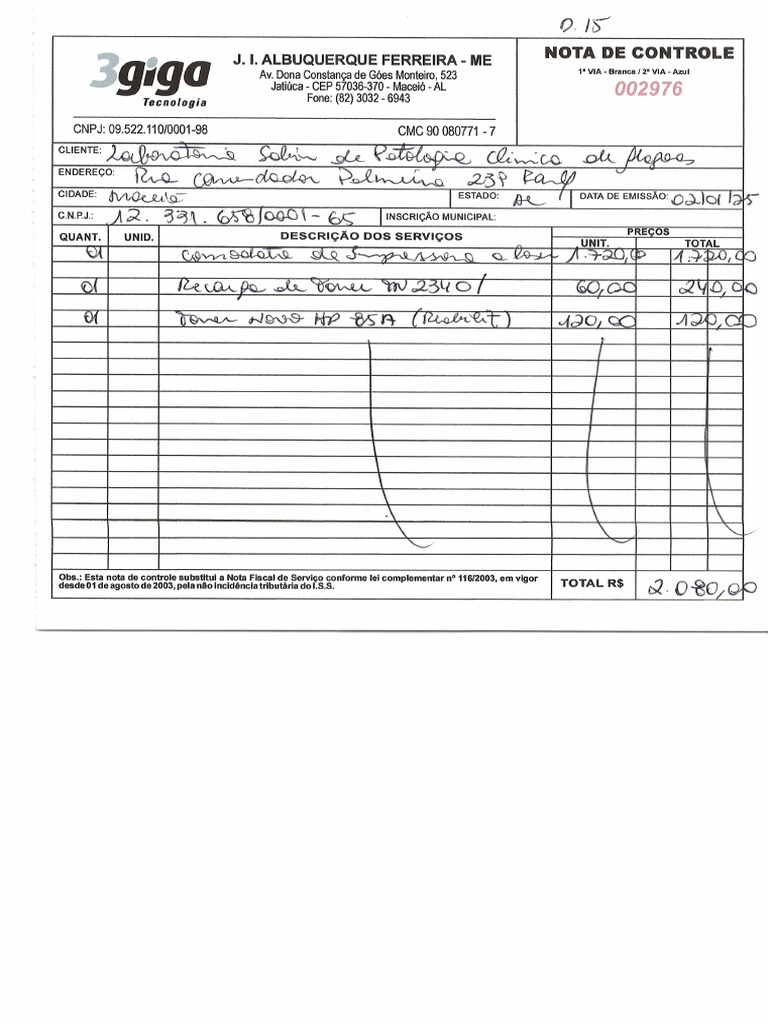 D. 15
3giga
Tecnologia
J. I. ALBUQUERQUE FERREIRA - ME
Av. Dona Constança de Góes Monteiro, 523
Jatiúca - CEP 57036-370 - Maceió - AL
Fone: (82) 3032 - 6943
CNPJ: 09.522.110/0001-98
CMC 90 080771 - 7
NOTA DE CONTROLE
1ª VIA - Branca / 2ª VIA - Azul
002976
CLIENTE: Laboratorio Sabin de Patologia Clinica de Alagoas
ENDEREÇO: Rua Comendador Palmeira
CIDADE: Maceió ESTADO: AL DATA DE EMISSÃO: 02/01/25
C.N.P.J.: 12. 331. 658/0001-65 INSCRIÇÃO MUNICIPAL:
QUANT. UNID. DESCRIÇÃO DOS SERVIÇOS PREÇOS
UNIT. TOTAL
01 Comodato de Impressora a laser 1.720,00 1.720,00
01 Recarga de Toner TN 2340/ 60,00 240,00
01 Toner Novo HP 85A 120,00 120,00
Obs.: Esta nota de controle substitui a Nota Fiscal de Serviço conforme lei complementar nº 116/2003, em vigor
desde 01 de agosto de 2003, pela não incidência tributária do I.S.S.
TOTAL R$ 2.080,00